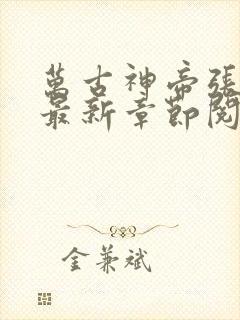 萬古神帝張
最新章節閱
金兼斌